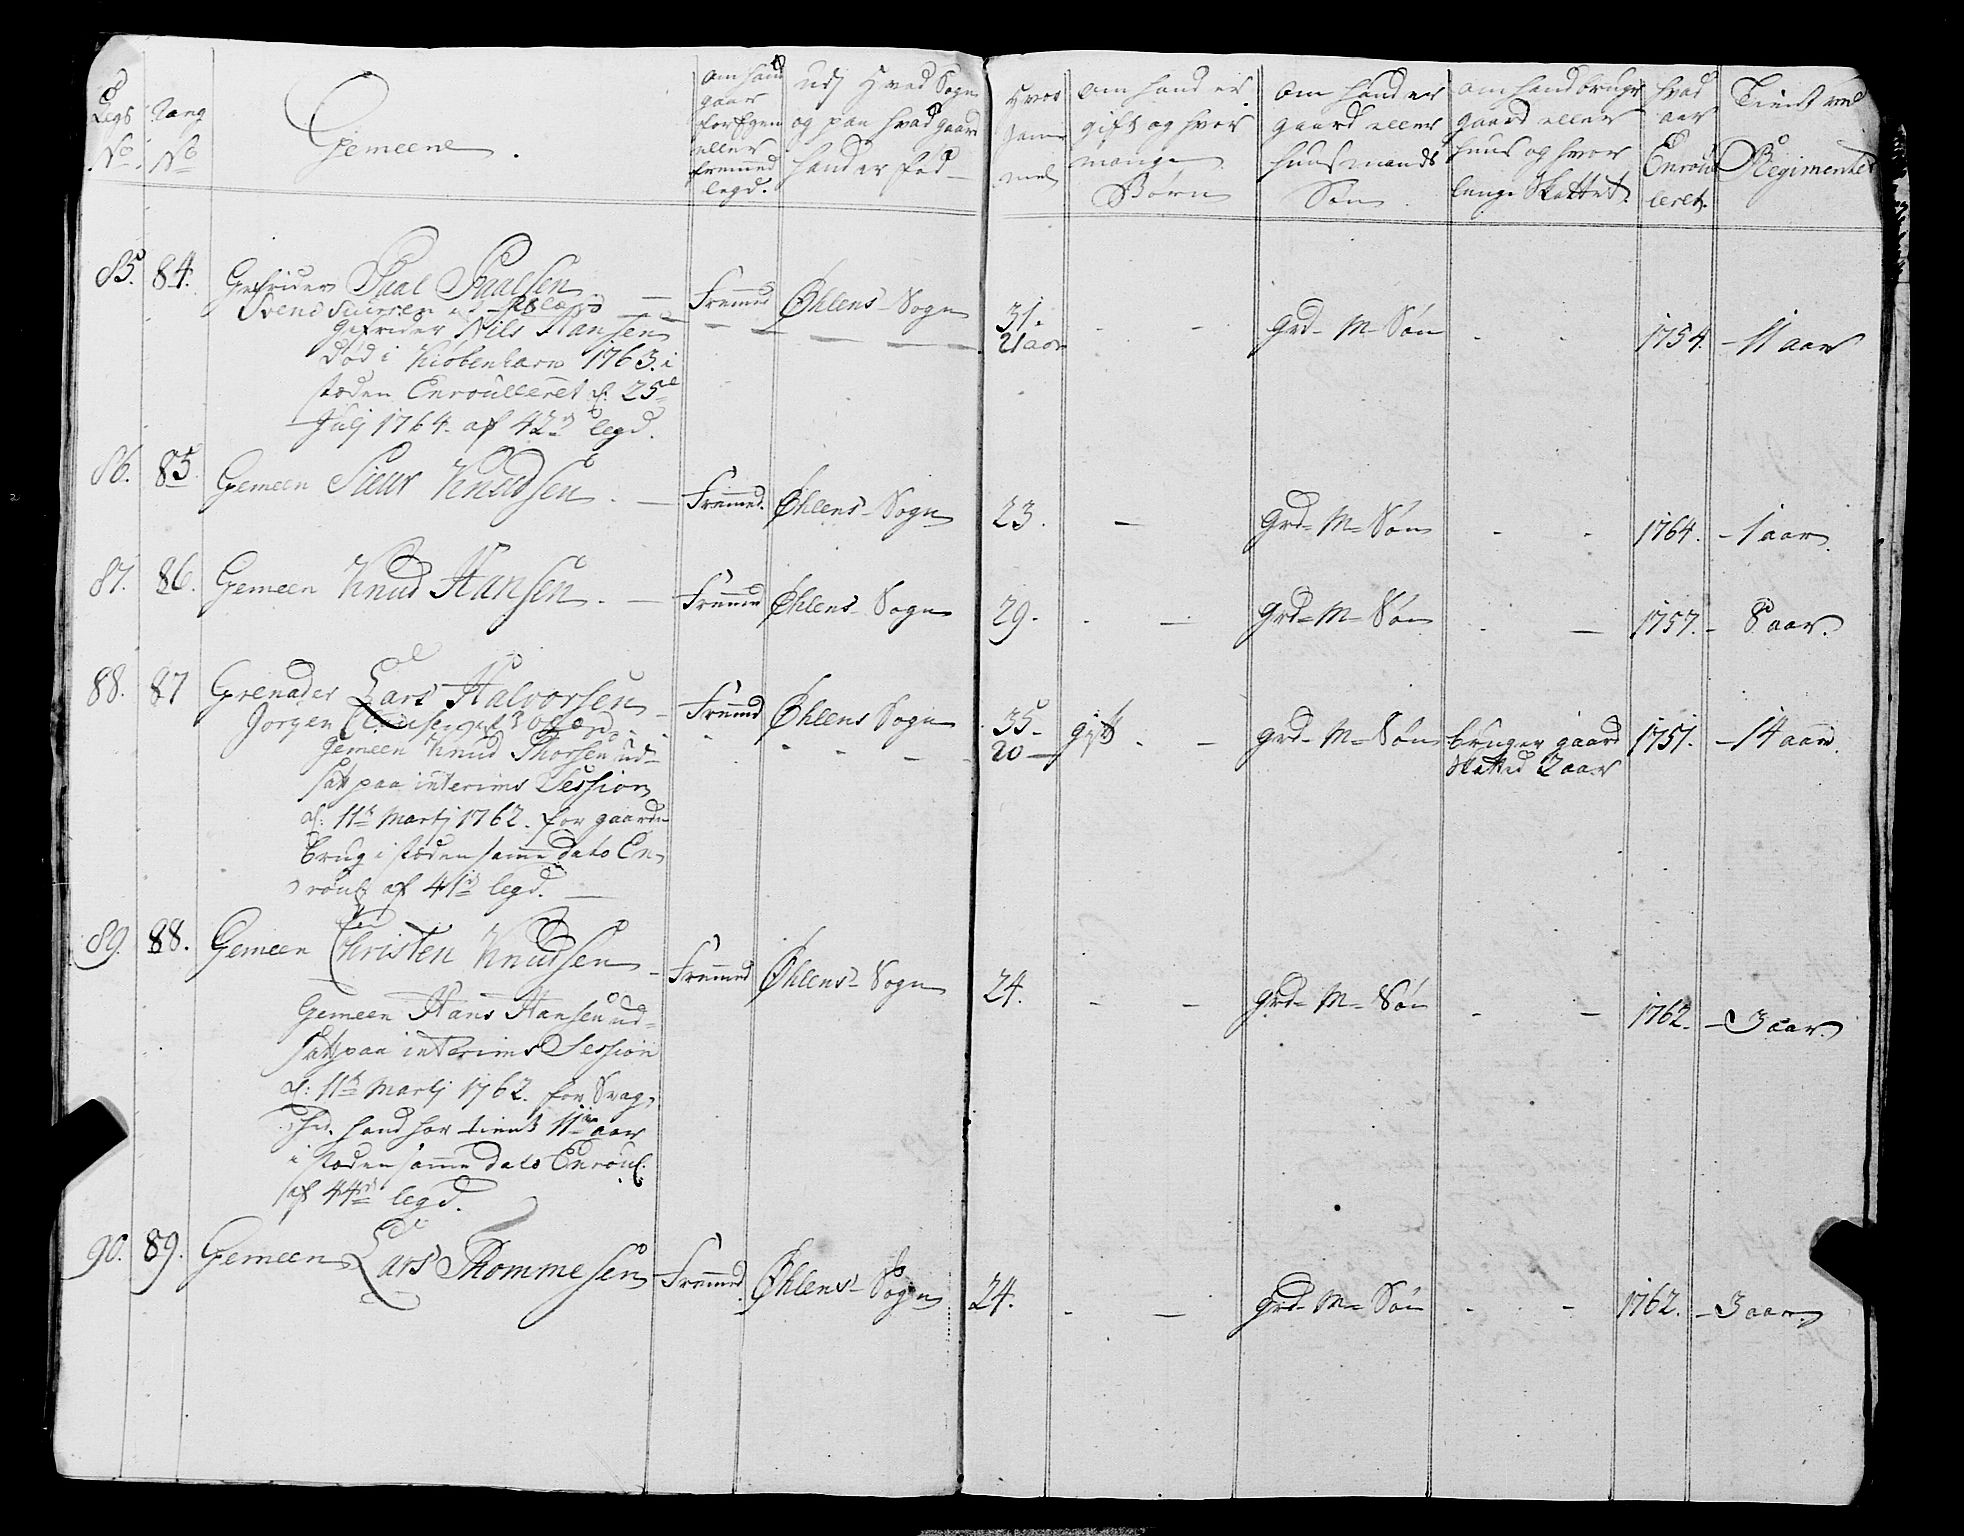 Legs No
Rang No
Gemeene.
om hand gaar for Egen eller fremmed legd.
udj Hvad Sogn og paa hvad gaard hand er fød
Hvor gammel
om hand er gift og hvor mange Børn
om hand er gaard eller huusmands Søn
om hand bruger gaard eller huus og hvor lenge Skattet.
hvad aar Enroulleret.
Tient ved Regimentet
85. 84. Gefrider Paal Paalsen Fremmed Øhlens Sogn 31. - - Grd- M- Søn - - 1754. - 11 aar
Svend 21 aar
Gefrider Nils Hansen
død i Kiøbenhavn 1763. i
stæden Enroulleret d: 25de
Julj 1764. af 42de legd.
86. 85. Gemeen Siur Knudsen. Fremmed. Øhlens Sogn 23. - Grd- M- Søn - - 1764. - 1 aar.
87. 86. Gemeen Knud Hansen. Fremmed Øhlens Sogn 29. - - Grd- M- Søn - - 1757. - 8 aar.
88. 87 Grenader Lars Halvorsen Fremmed Øhlens Sogn 35- gift - - grd- M- Søn bruger gaard 1751. - 14 aar.
Jørgen 20 - skatted 2 aar
Gemeen Knud Thorsen ud-
sat paa interims Session
d: 11te Martj 1762. for gaards
brug i stæden samme dato En-
roul: af 41de legd.
89. 88. Gemeen Christen Knudsen Fremmed Øhlens Sogn 24. - - grd- M- Søn - - 1762. - 3 aar.
Gemeen Hans Hansen ud-
sat paa interims Session
d: 11te Martj 1762. for Svag-
hed. hand har tient 11 aar
i stæden samme dato Enroul:
af 44de legd.
90. 89. Gemeen Lars Thommesen Fremmed Øhlens Sogn 24. - - grd- M- Søn - - 1762. - 3 aar.